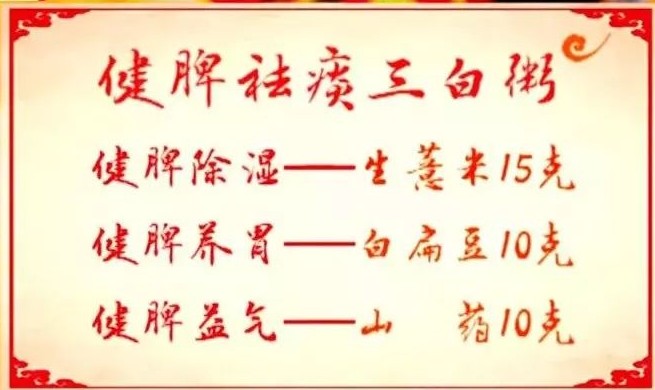 健脾祛痰三白粥
健脾除湿——生薏米15克
健脾养胃——白扁豆10克
健脾益气——山　药10克